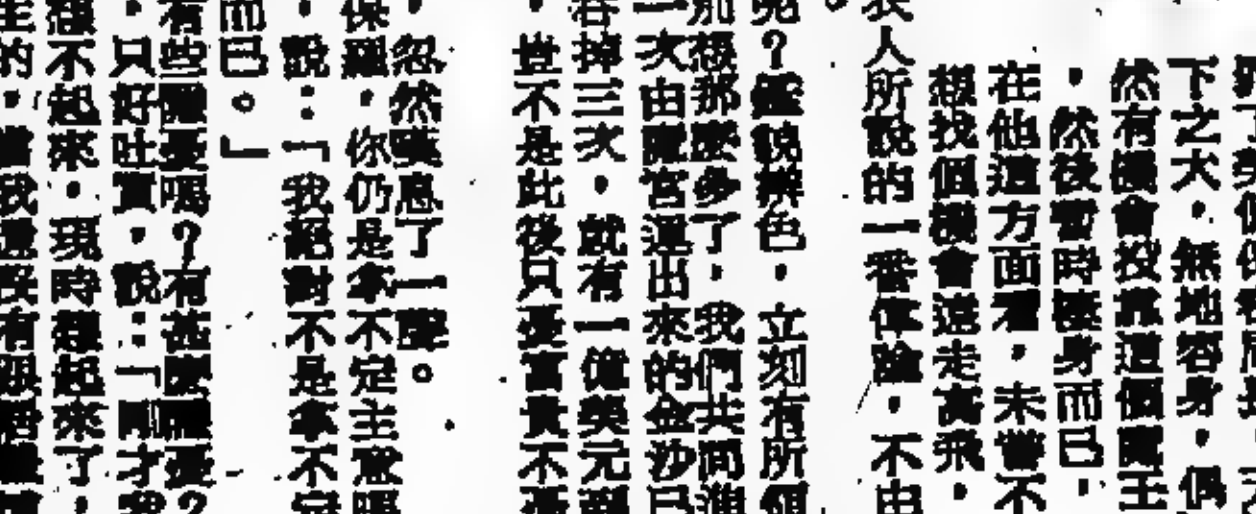 下之大，無地容身，偶
然有機會投靠這個魔王
，然後暫時棲身而已，
在他這方面看，未嘗不
想找個機會遠走高飛，
人所說的一番偉論，不由
？鑑貌辨色，立刻有所領
想那麼多了，我們共同
一次由魔宮運出來的金沙已
掉三次，就有一億美元
，豈不是此後只憂富貴不
，忽然嘆息了一聲。
保羅，你仍是拿不定主意嗎
，說：「我絕對不是拿不定
而已。」
有些隱憂嗎？有甚麼隱憂？
，只好吐實，說：「剛才我
想不起來，現時想起來了，
的，當我